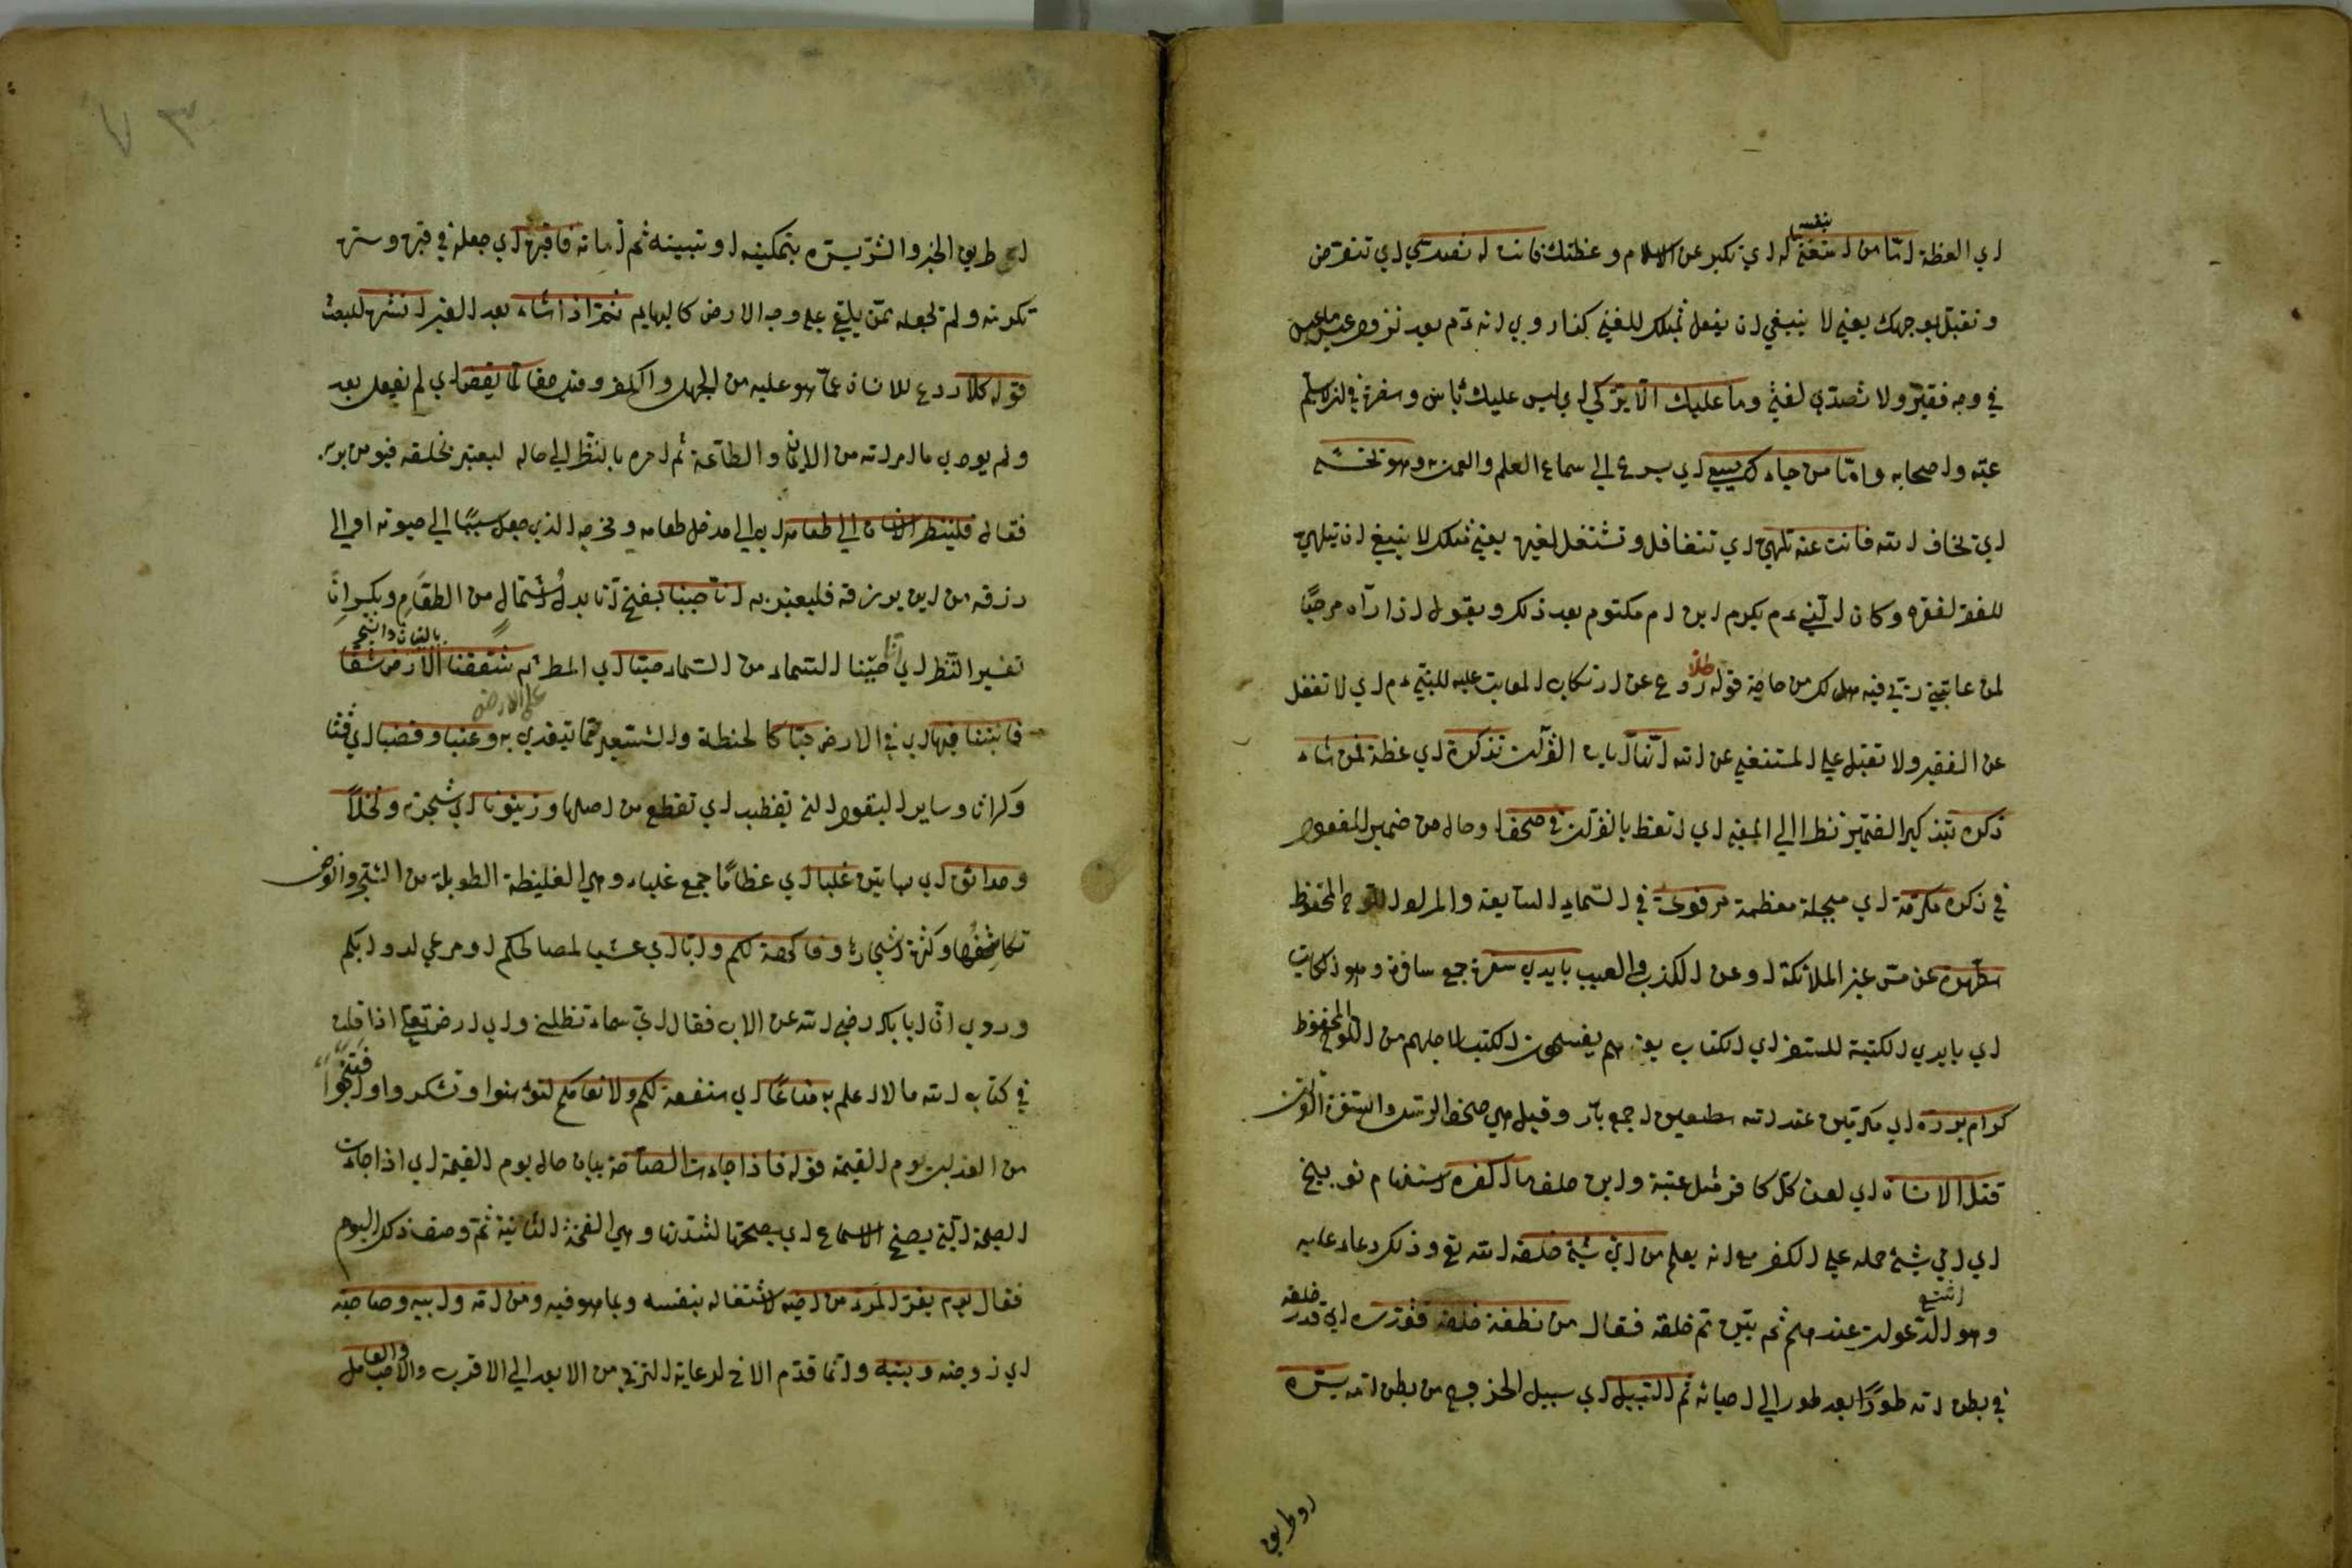 اي العظة امّا من استغنى بنفسه اي تكبر عن الاسلام وعظتك فانت له تصدّى اي تتعرض
وتقبل بوجهك يعني لا ينبغي ان يفعل مثلك للغني كذا روي انه ءم بعد نزوله
في وجه فقير ولا تصدّى لغني وما عليك الّا يزكّى اي ليس عليك باس وضرر في ان لا يسلم
عتبة واصحابه وامّا من جاءك يسعى اي يسرع الى سماع العلم والعمل به وهو يخشى
اي يخاف الله فانت عنه تلهّى اي تتغافل وتشتغل لغيره يعني مثلك لا ينبغي ان يتلهى
للفقير لفقره وكان النبي ءم يكرم ابن ام مكتوم بعد ذلك ويقول اذا رآه مرحبًا
لمن عاتبني ربّي فيه هل لك من حاجة قوله كلا ردع عن ارتكاب المعاتب عليه للنبي ءم اي لا تغفل
عن الفقير ولا تقبل على المستغني عن الله انّها آيات القرآن تذكرة اي عظة فمن شاء
ذكره بتذكير الضمير نظرا الى المعنى اي اتعظ بالقرآن في صحف حال من ضمير المفعول
في ذكره مكرّمة اي مبجلة معظمة مرفوعة في السماء السابعة والمراد اللوح المحفوظ
مطهّرة عن مسّ غير الملائكة او عن الكذب والعيب بايدي سفرة جمع سافر وهو الكاتب
اي بايدي الكتبة للسفر اي الكتاب يعني هم ينسخون الكتب لاجلهم من اللوح المحفوظ
كرام بررة اي مكرمين عند الله مطيعين جمع بارّ وقيل هي صحف الرسل والسفرة القراء
قتل الانسان اي لعن كل كافر مثل عتبة وابن خلف ما اكفره استفهام توبيخ
اي ايّ شيء حمله على الكفر مع انه يعلم من ايّ شيء خلقه الله تع وذلك دعاء عليه
وهو الدعوات عندهم ثم بيّن ثم خلقه فقال من نطفة خلقه فقدّره اي قدر خلقه
في بطن امه طورًا بعد طور الى احيائه ثم السبيل اي سبيل الخروج من بطن امه يسّره
او طريق
او طريق الخير والشرّ يسّره بتمكينه او بتبيينه ثم اماته فاقبره اي جعله في قبره وستره
تكرمة ولم يجعله ممّن يلقى على وجه الارض كالبهايم ثمّ اذا شاء بعد القبر انشره للبعث
قوله كلّا ردع للانسان عمّا هو عليه من الجهل والكفر لمّا يقض اي لم يفعل بعد
ولم يودّ ما امر الله من الايمان والطاعة ثم امره بالنظر الى حاله ليعتبر بخلقه فيومن بربه
فقال فلينظر الانسان الى طعامه اي الى مدخل طعامه ومخرجه الذي جعل سببًا الى حيوته او الى
رزقه من اين يرزقه فليعتبر به انّا صببنا بفتح انّا بدل اشتمال من الطعام وبكسر انّا
تفسير النظر اي انّا صببنا السماء من السماء صبّا اي المطر ثم شققنا الارض شقّا بالنبات والشجر
فانبتنا فيها اي في الارض حبّا كالحنطة والشعير ممّا يتغذى به وعنبا وقضبا اي قثّا
وكراثا وساير البقول التي تقضب اي تقطع من اصلها وزيتونا اي شجرة ونخلًا
وحدائق اي بساتين غلبا اي عظامًا جمع غلباء وهي الغليظة الطويلة من الشجر والغرض
تكاثفها وكثرة اشجارها وفاكهة لكم وابّا اي عشبا لمصالحكم او مرعى لدوابكم
وروي انّ ابا بكر رضي الله عن الاب فقال ايّ سماء تظلني واي ارض تقلني اذا قلت
في كتاب الله ما لا اعلم به متاعًا اي منفعة لكم ولانعامكم لتؤمنوا وتشكروا
من العذاب يوم القيمة قوله فاذا جاءت الصاخة بيان حال يوم القيمة اي اذا جاءت
الصيحة التي يصخ الاسماع اي يصمّها لشدتها وهي النفخة الثانية ثمّ وصف ذلك اليوم
فقال يوم يفرّ المرء من اخيه لاشتغاله بنفسه وبما هو فيه ومن امّه وابيه وصاحبته
اي زوجته وبنيه وانّما قدّم الاخ لرعاية الترقي من الابعد الى الاقرب والاحب